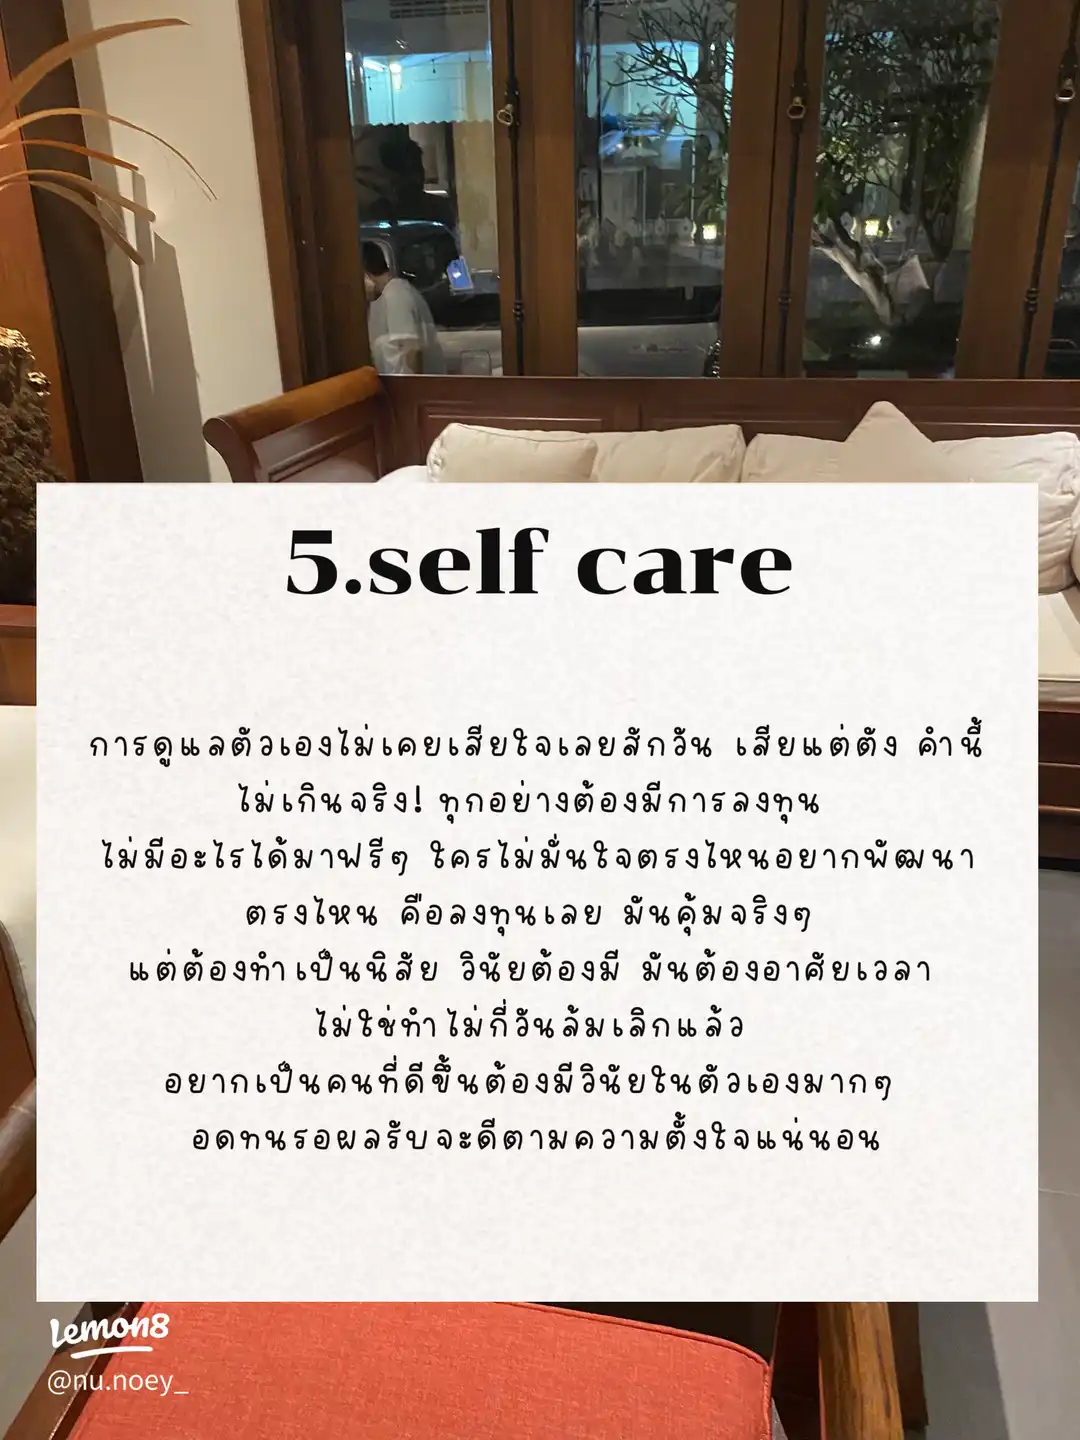 5.self care
การดูแลตัวเองไม่เคยเสียใจเลยสักวัน เสียแต่ตัง คำนี้
ไม่เกินจริง! ทุกอย่างต้องมีการลงทุน
ไม่มีอะไรได้มาฟรีๆ ใครไม่มั่นใจตรงไหนอยากพัฒนา
ตรงไหน คือลงทุนเลย มันคุ้มจริงๆ
แต่ต้องทำเป็นนิสัย วินัยต้องมี มันต้องอาศัยเวลา
ไม่ใช่ทำไม่กี่วันล้มเลิกแล้ว
อยากเป็นคนที่ดีขึ้นต้องมีวินัยในตัวเองมากๆ
อดทนรอผลรับจะดีตามความตั้งใจแน่นอน
lemon8
@nu.noey_